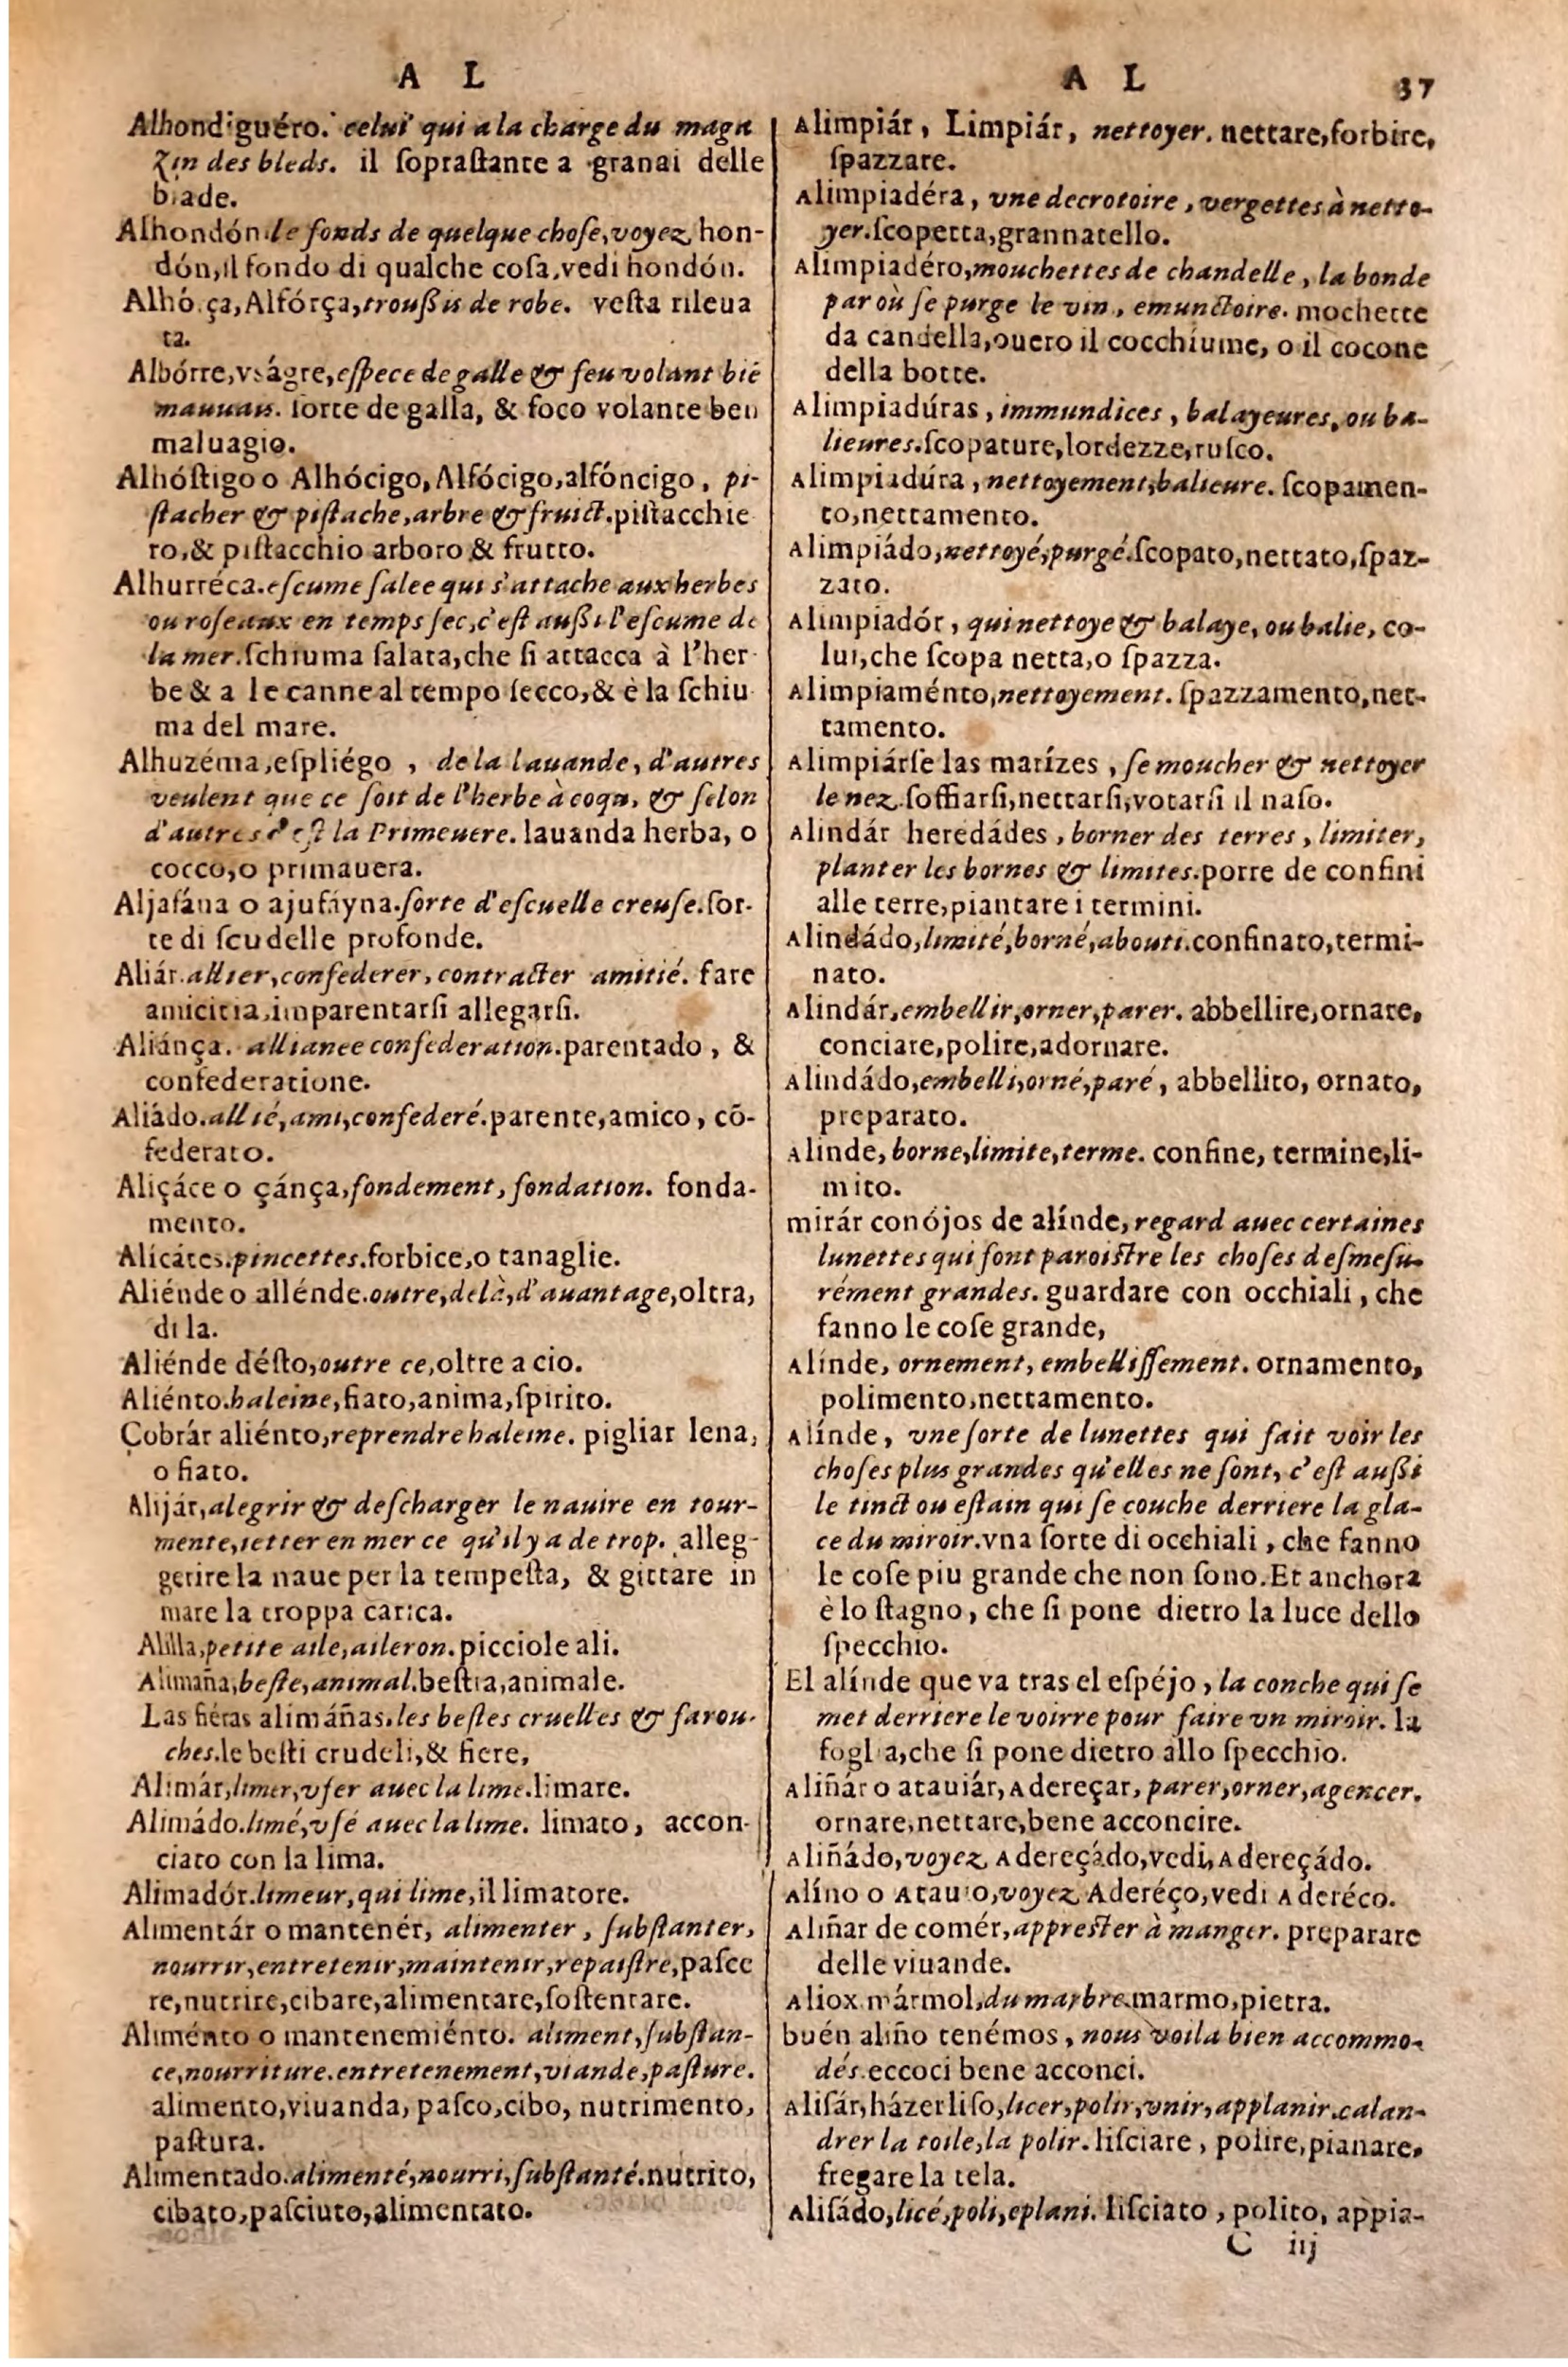 A L
Alhondiguéro. celui qui a la charge du maga
zin des bleds. il ſopraſtante a granai delle
biade.
Alhondón. le fonds de quelque choſe, voyez hon-
dón, il fondo di qualche coſa, vedi hondón.
Alhórça, Alfórça, trouſsis de robe. veſta rileua
ta.
Albórre, vságre, eſpece de galle & feu volant bié
mauuais. ſorte de galla, & foco volante ben
maluagio.
Alhóſtigo o Alhócigo, Alfócigo, alfóncigo, pi-
ſtacher & piſtache, arbre & fruict. piſtacchie
ro, & piſtacchio arboro & frutto.
Alhurréca. eſcume ſalee qui s'attache aux herbes
ou roſeaux en temps ſec, c'eſt auſsi l'eſcume de
la mer. ſchiuma ſalata, che ſi attacca à l'her
be & a le canne al tempo ſecco, & è la ſchiu
ma del mare.
Alhuzéma, eſpliégo , de la lauande, d'autres
veulent que ce ſoit de l'herbe à coqu, & ſelon
d'autres c'eſt la Primeuere. lauanda herba, o
cocco, o primauera.
Aljafána o ajufáyna. ſorte d'eſcuelle creuſe. ſor-
te di ſcudelle profonde.
Aliár. allier, confederer, contracter amitié. fare
amicitia, imparentarſi allegarſi.
Aliánça. alliance confederation. parentado , &
confederatione.
Aliádo. allié, ami, confederé. parente, amico , cō-
federato.
Aliçáce o çánça, fondement, fondation. fonda-
mento.
Alicátes. pincettes. forbice, o tanaglie.
Aliénde o allénde. outre, delà, d'auantage, oltra,
di la.
Aliénde déſto, outre ce, oltre a cio.
Aliénto. haleine, fiato, anima, ſpirito.
Çobrár aliénto, reprendre haleine. pigliar lena,
o fiato.
Alijár, alegrir & deſcharger le nauire en tour-
mente, ietter en mer ce qu'il y a de trop. alleg-
gerire la naue per la tempeſta, & gittare in
mare la troppa carica.
Alilla, petite aile, aileron. picciole ali.
Alimaña, beſte, animal. beſtia, animale.
Las fiéras alimáñas. les beſtes cruelles & farou-
ches. le beſti crudeli, & fiere,
Alimár, limer, vſer auec la lime. limare.
Alimádo. limé, vſé auec la lime. limato, accon-
ciato con la lima.
Alimadór. limeur, qui lime, il limatore.
Alimentár o mantenér, alimenter, ſubſtanter,
nourrir, entretenir, maintenir, repaiſtre, paſce
re, nutrire, cibare, alimentare, ſoſtentare.
Aliménto o mantenemiénto. aliment, ſubſtan-
ce, nourriture. entretenement, viande, paſture.
alimento, viuanda, paſco, cibo, nutrimento,
paſtura.
Alimentado. alimenté, nourri, ſubſtanté. nutrito,
cibato, paſciuto, alimentato.
A L 37
Alimpiár, Limpiár, nettoyer. nettare, forbire,
ſpazzare.
Alimpiadéra, vne decrotoire, vergettes à netto-
yer. ſcopetta, grannatello.
Alimpiadéro, mouchettes de chandelle, la bonde
par où ſe purge le vin, emunctoire. mochette
da candella, ouero il cocchiume, o il cocone
della botte.
Alimpiadúras, immundices, balayeures, ou ba-
lieures. ſcopature, lordezze, ruſco.
Alimpiadúra, nettoyement, balieure. ſcopamen-
to, nettamento.
Alimpiádo, nettoyé, purgé. ſcopato, nettato, ſpaz-
zato.
Alimpiadór, qui nettoye & balaye, ou balie, co-
lui, che ſcopa netta, o ſpazza.
Alimpiaménto, nettoyement. ſpazzamento, net-
tamento.
Alimpiárſe las marízes, ſe moucher & nettoyer
le nez. ſoffiarſi, nettarſi, votarſi il naſo.
Alindár heredádes, borner des terres, limiter,
planter les bornes & limites. porre de confini
alle terre, piantare i termini.
Alindádo, limité, borné, abouti. confinato, termi-
nato.
Alindár, embellir, orner, parer. abbellire, ornare,
conciare, polire, adornare.
Alindádo, embelli, orné, paré, abbellito, ornato,
preparato.
Alinde, borne, limite, terme. confine, termine, li-
mito.
mirár con ójos de alínde, regard auec certaines
lunettes qui font paroiſtre les choſes deſmeſu-
rément grandes. guardare con occhiali, che
fanno le coſe grande,
Alínde, ornement, embelliſſement. ornamento,
polimento, nettamento.
Alínde, vne ſorte de lunettes qui fait voir les
choſes plus grandes qu'elles ne ſont, c'eſt auſsi
le tinct ou eſtain qui ſe couche derriere la gla-
ce du miroir. vna ſorte di occhiali, che fanno
le coſe piu grande che non ſono. Et anchora
è lo ſtagno, che ſi pone dietro la luce dello
ſpecchio.
El alínde que va tras el eſpéjo, la conche qui ſe
met derriere le voirre pour faire vn miroir. la
foglia, che ſi pone dietro allo ſpecchio.
Aliñár o atauiár, Adereçar, parer, orner, agencer.
ornare, nettare, bene acconcire.
Aliñádo, voyez Adereçádo, vedi, Adereçádo.
Alíno o Atauio, voyez Aderéço, vedi Aderéco.
Aliñar de comér, appreſter à manger. preparare
delle viuande.
Aliox mármol, du marbre. marmo, pietra.
buén aliño tenémos, nous voila bien accommo-
dés. eccoci bene acconci.
Aliſár, házer liſo, licer, polir, vnir, applanir. calan-
drer la toile, la polir. liſciare, polire, pianare,
fregare la tela.
Aliſádo, licé, poli, eplani. liſciato, polito, appia-
C iij